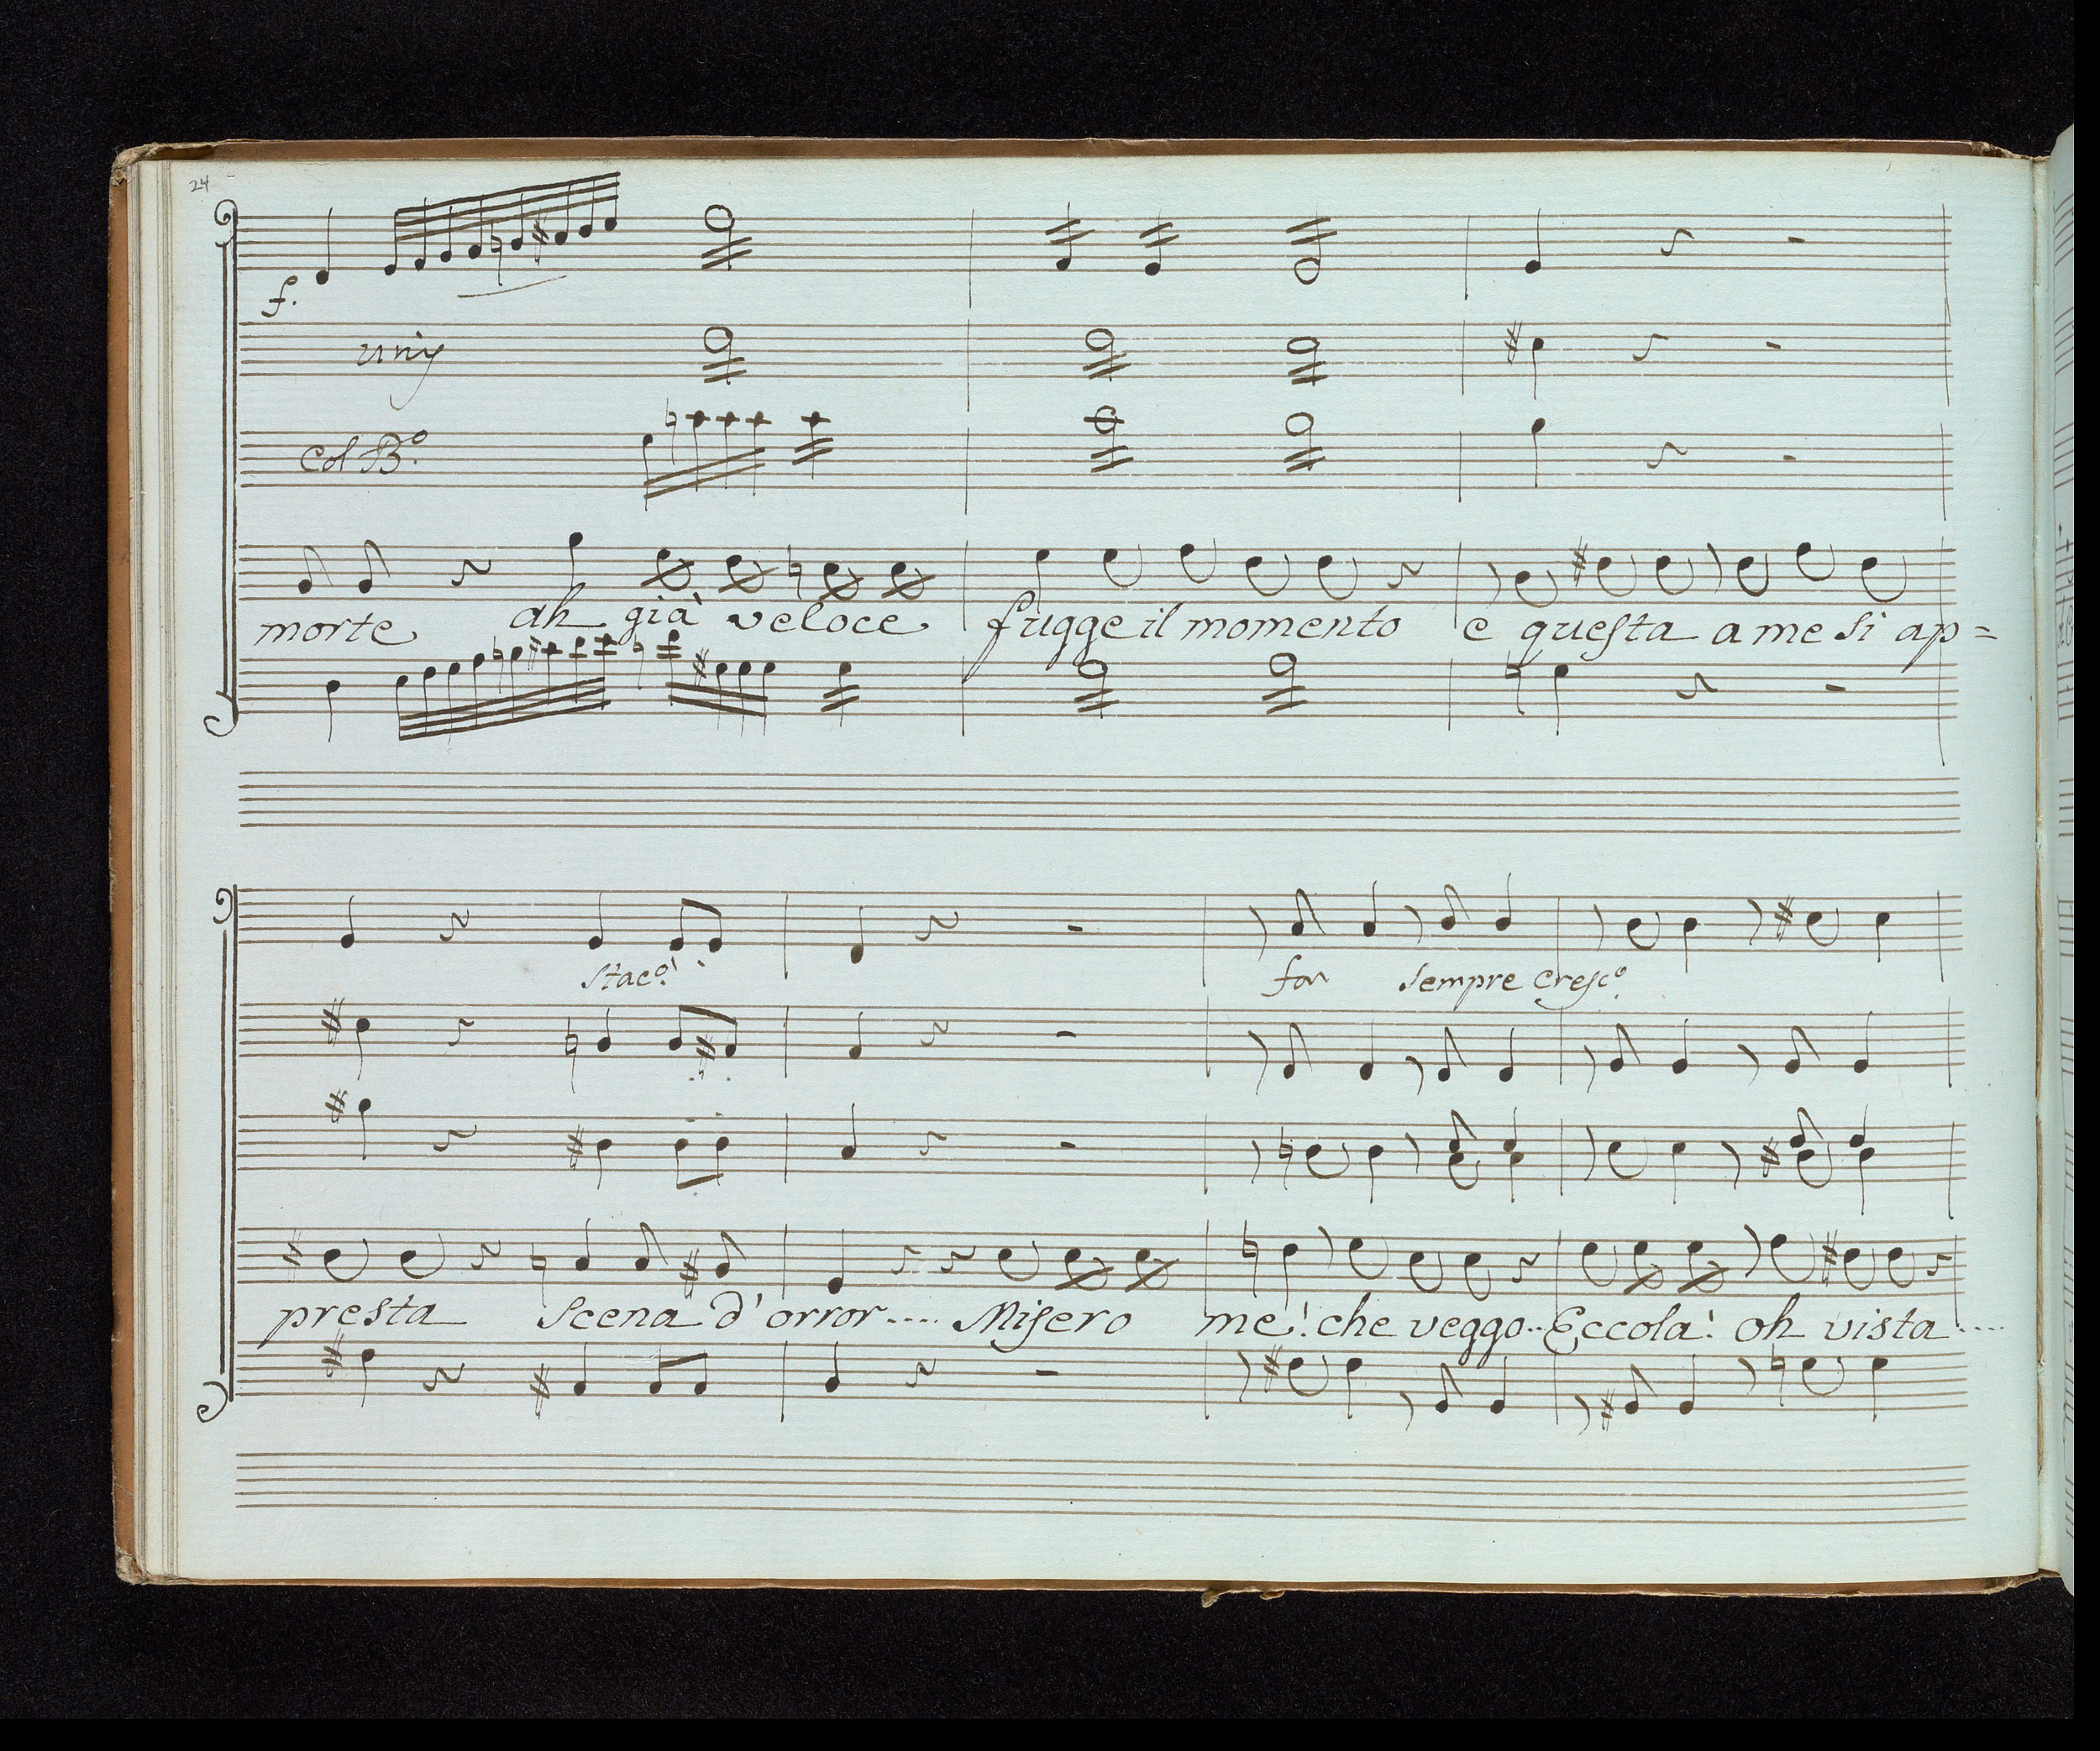 24
f.
unis
Col B.o
morte ah già veloce fugge il momento e questa a me si ap=
Staco.
for sempre cresco.
presta Scena d'orror.... Misero me! che veggo.. Eccola! oh vista....